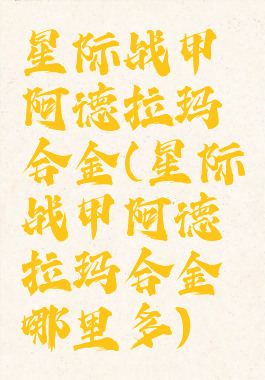 星际战甲
阿德拉玛
合金(星际
战甲阿德
拉玛合金
哪里多)